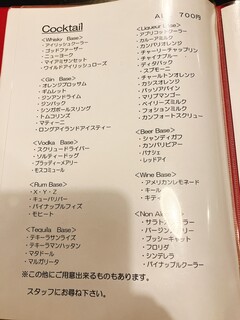 Cocktail
<Whisky Base>
・アイリッシュクーラー
・ゴッドファーザー
・ニューヨーク
・マイアミサンセット
・ワイルドアイリッシュローズ
<Gin Base>
・オレンジブロッサム
・ギムレット
・ジンアンドライム
・ジンバック
・シンガポールスリング
・トムコリンズ
・マティーニ
・ロングアイランドアイスティー
<Vodka Base>
・スクリュードライバー
・ソルティードッグ
・ブラッディーメアリー
・モスコミュール
<Rum Base>
・X・Y・Z
・キューバリバー
・パイナップルフィズ
・モヒート
<Tequila Base>
・テキーラサンライズ
・テキーラマンハッタン
・マタドール
・マルガリータ
700円
<Liqueur Base>
・アプリコットクーラー
・カルーアミルク
・カンパリオレンジ
・チャーリーチャップリン
・チャイナブルー
・ディタバック
・スプモーニ
・チャールトンオレンジ
・カシスオレンジ
・パッソアパイン
・マリブマンゴー
・ベイリーズミルク
・フォーリンスモーク
・カンフォートスクリュー
<Beer Base>
・シャンディガフ
・カンパリビアー
・パナシェ
・レッドアイ
<Wine Base>
・アメリカンレモネード
・キール
・キティ
<Non
・サラトガクーラー
・バージンブリーズ
・プッシーキャット
・フロリダ
・シンデレラ
・パイナップルクーラー
※この他にご用意出来るものもあります。
スタッフにお尋ね下さい。